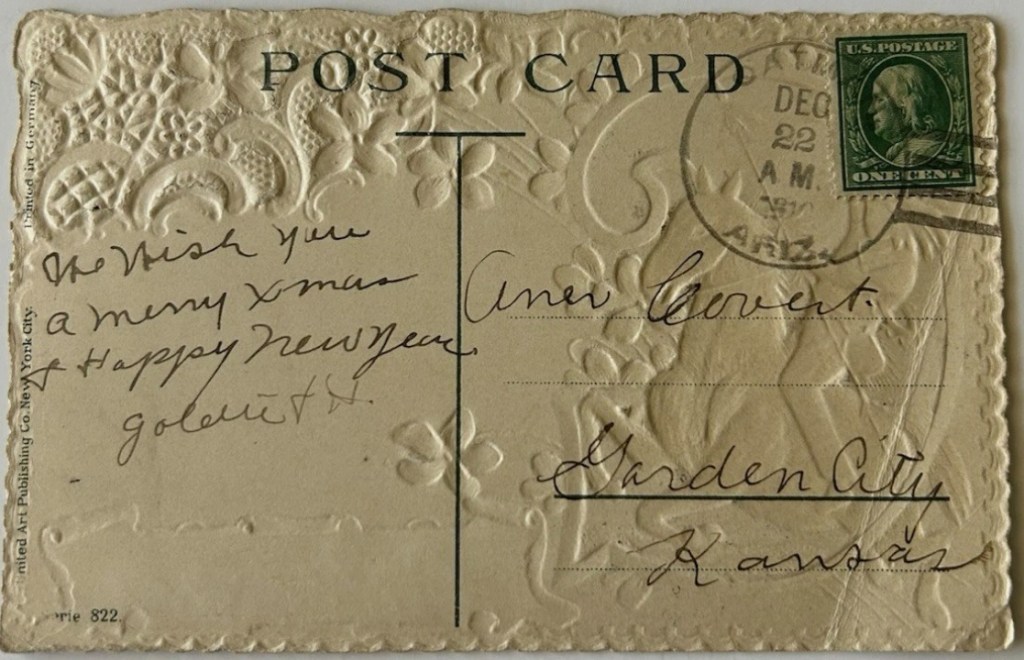 POST CARD
U.S. POSTAGE
ONE CENT
DEC
22
A M.
ARIZ.
Printed in Germany
nited Art Publishing Co. New York City.
We Wish you
a Merry Xmas
& Happy New Year
Goldie & H.
Covert.
Garden City
Kansas
rie 822.